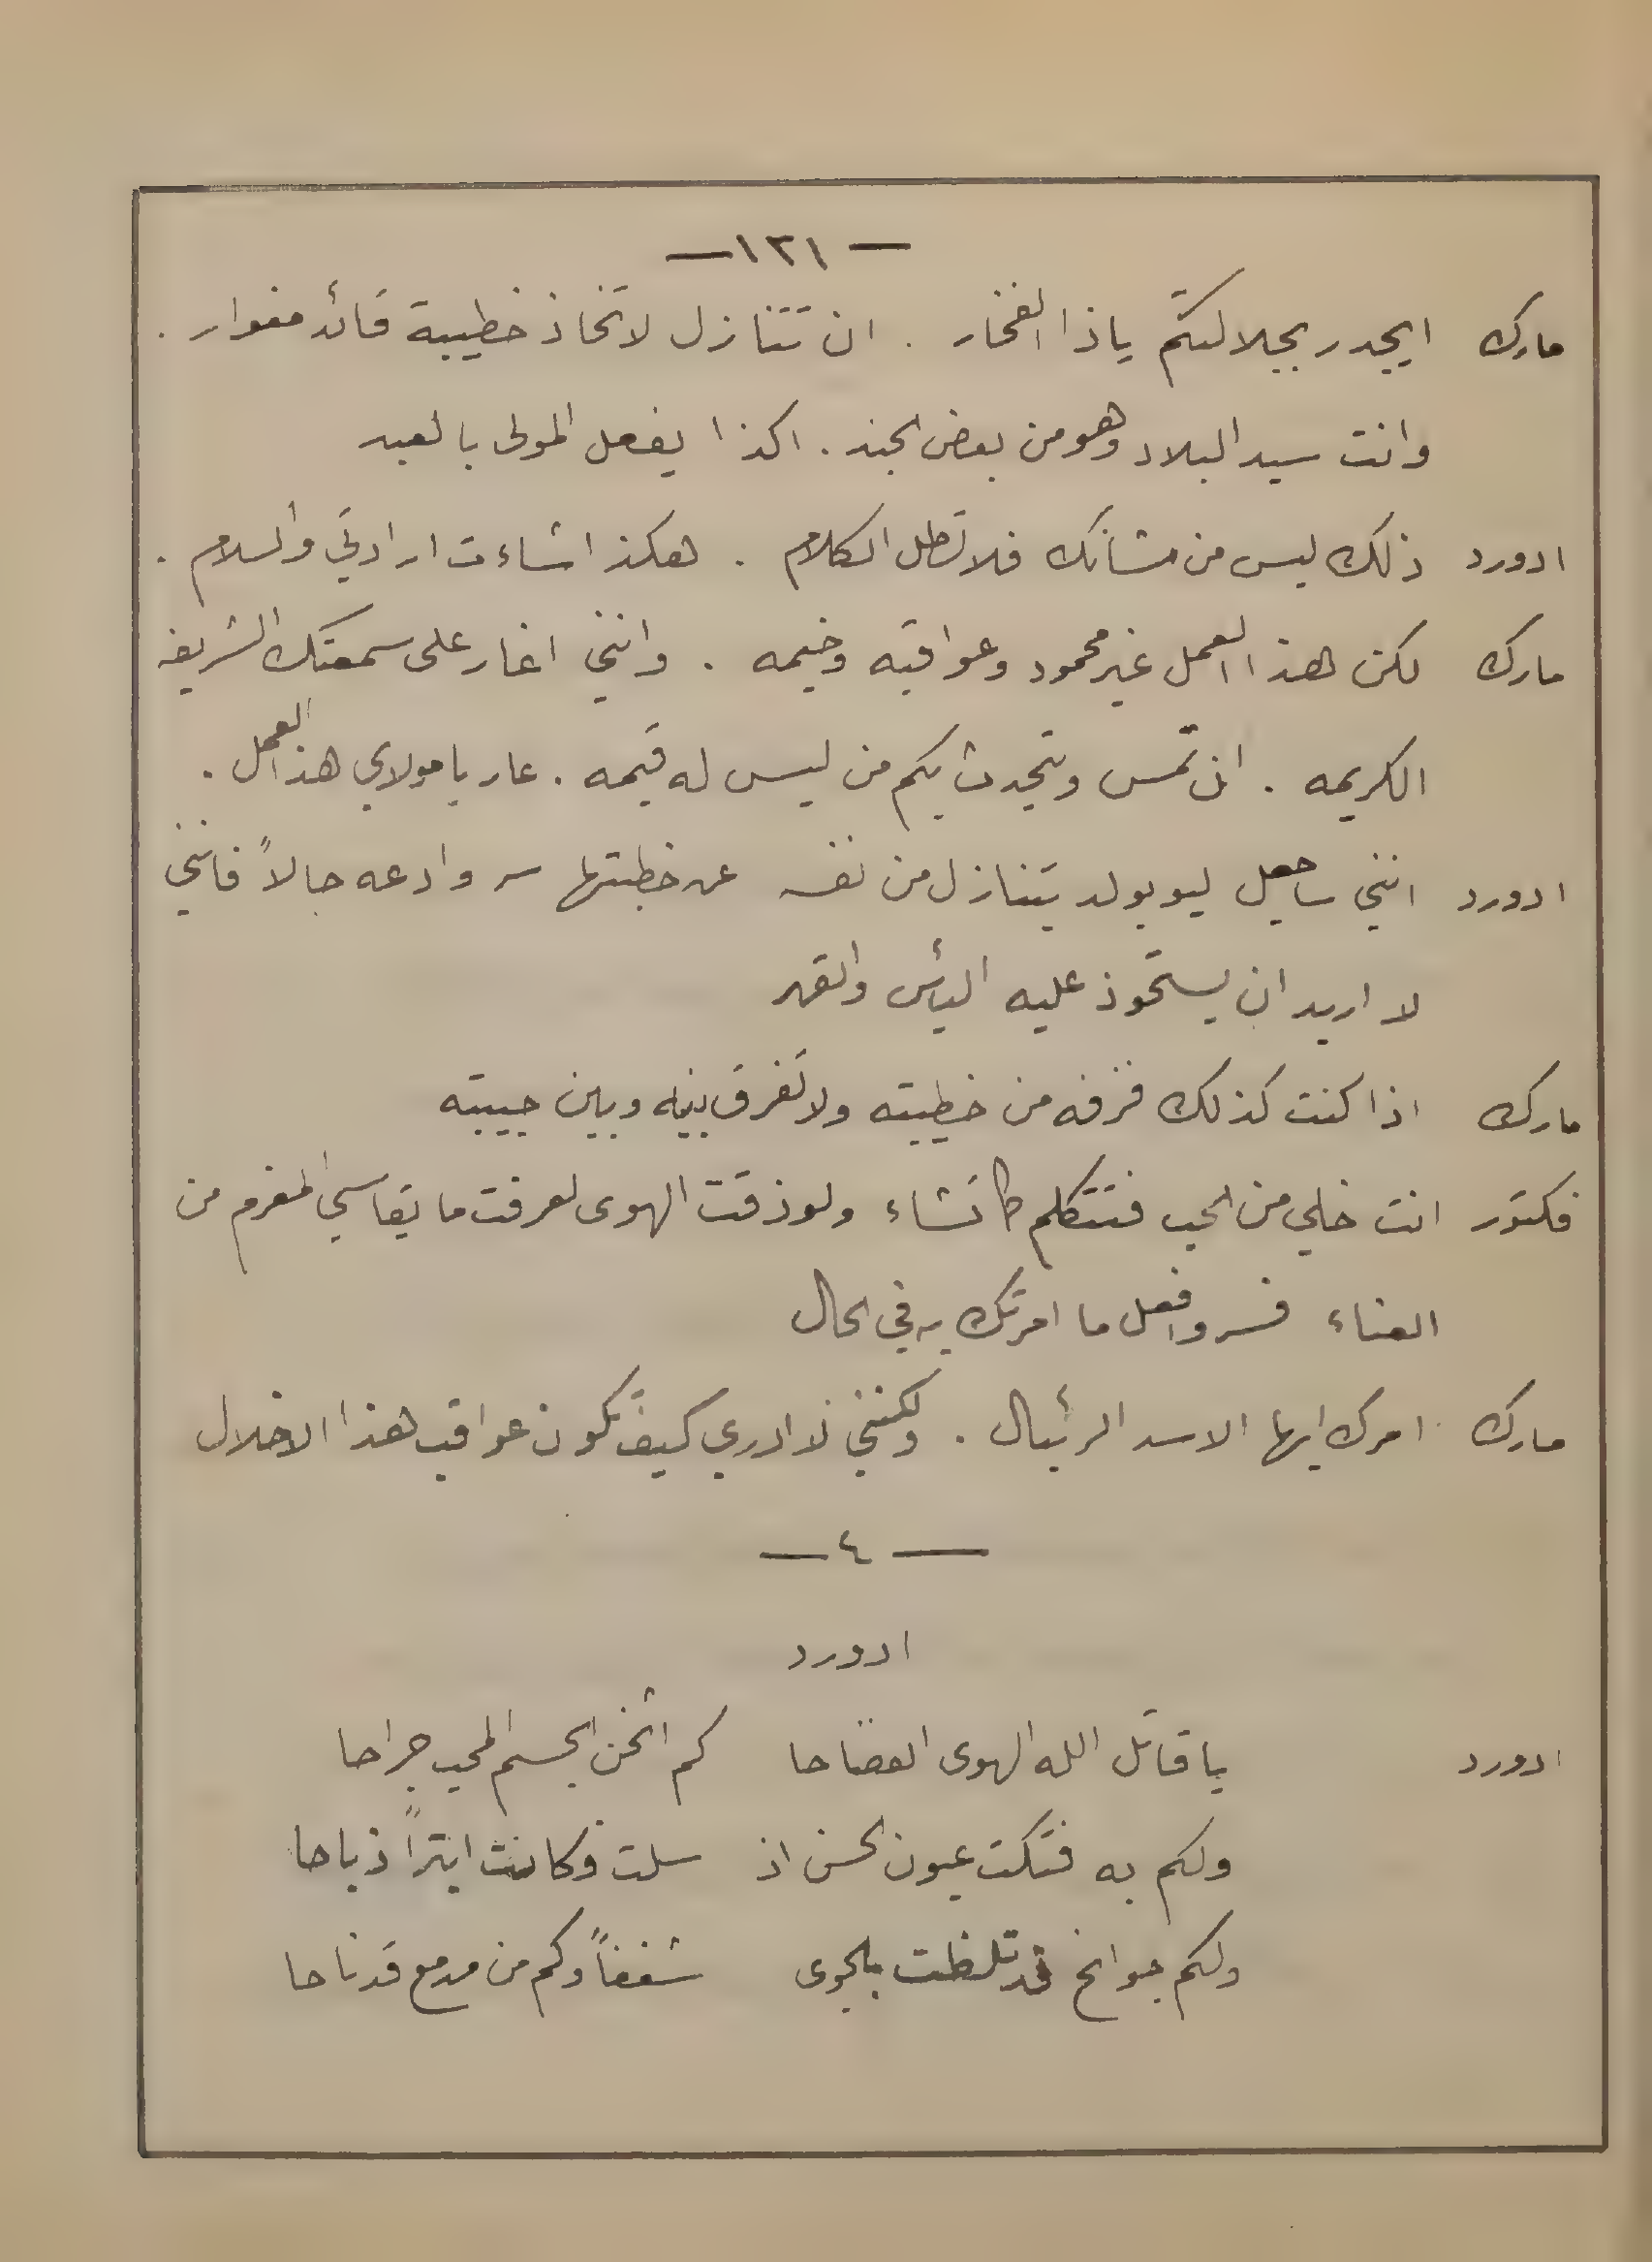 — ١٢١ —
مارك ايجدر بجلالتكم ياذا الفخار . ان تتنازل لاتخاذ خطيبة قائد مغوار .
وانت سيد البلاد وهو من بعض الجند . اكذا يفعل المولى بالعبد
ادورد ذلك ليس من شانك فلا تطل الكلام . هكذا شاءت ارادتي والسلام .
مارك لكن هذا العمل غير محمود وعواقبه وخيمه . وانني اغار على سمعتك الشريفه
الكريمه . ان تمس ويتحدث بكم من ليس له قيمه . عار يا مولاي هذا العمل .
ادورد انني ساجعل ليوبولد يتنازل من نفسه عن خطبتها سر وادعه حالاً فانني
لا اريد ان يستحوذ عليه اليأس والقهر
مارك اذا كنت كذلك فزفه من خطيبته ولا تفرق بينه وبين حبيبته
فكتور انت خلي من الحب فتتكلم كما تشاء ولو ذقت الهوى لعرفت ما يقاسي المغرم من
العناء فسر وافعل ما امرتك به في الحال
مارك امرك ايها الاسد الرئبال . ولكنني لا ادري كيف تكون عواقب هذا الاخلال
— ٤ —
ادورد
ادورد يا قاتل الله الهوى الفضاحا كم اثخن الجسم المحب جراحا
ولكم به فتكت عيون الحسن اذ سلت فكانت ابتراً ذباحا
ولكم جوانح قد تلظت بالجوى شغفاً وكم من مدمع قد ناحا